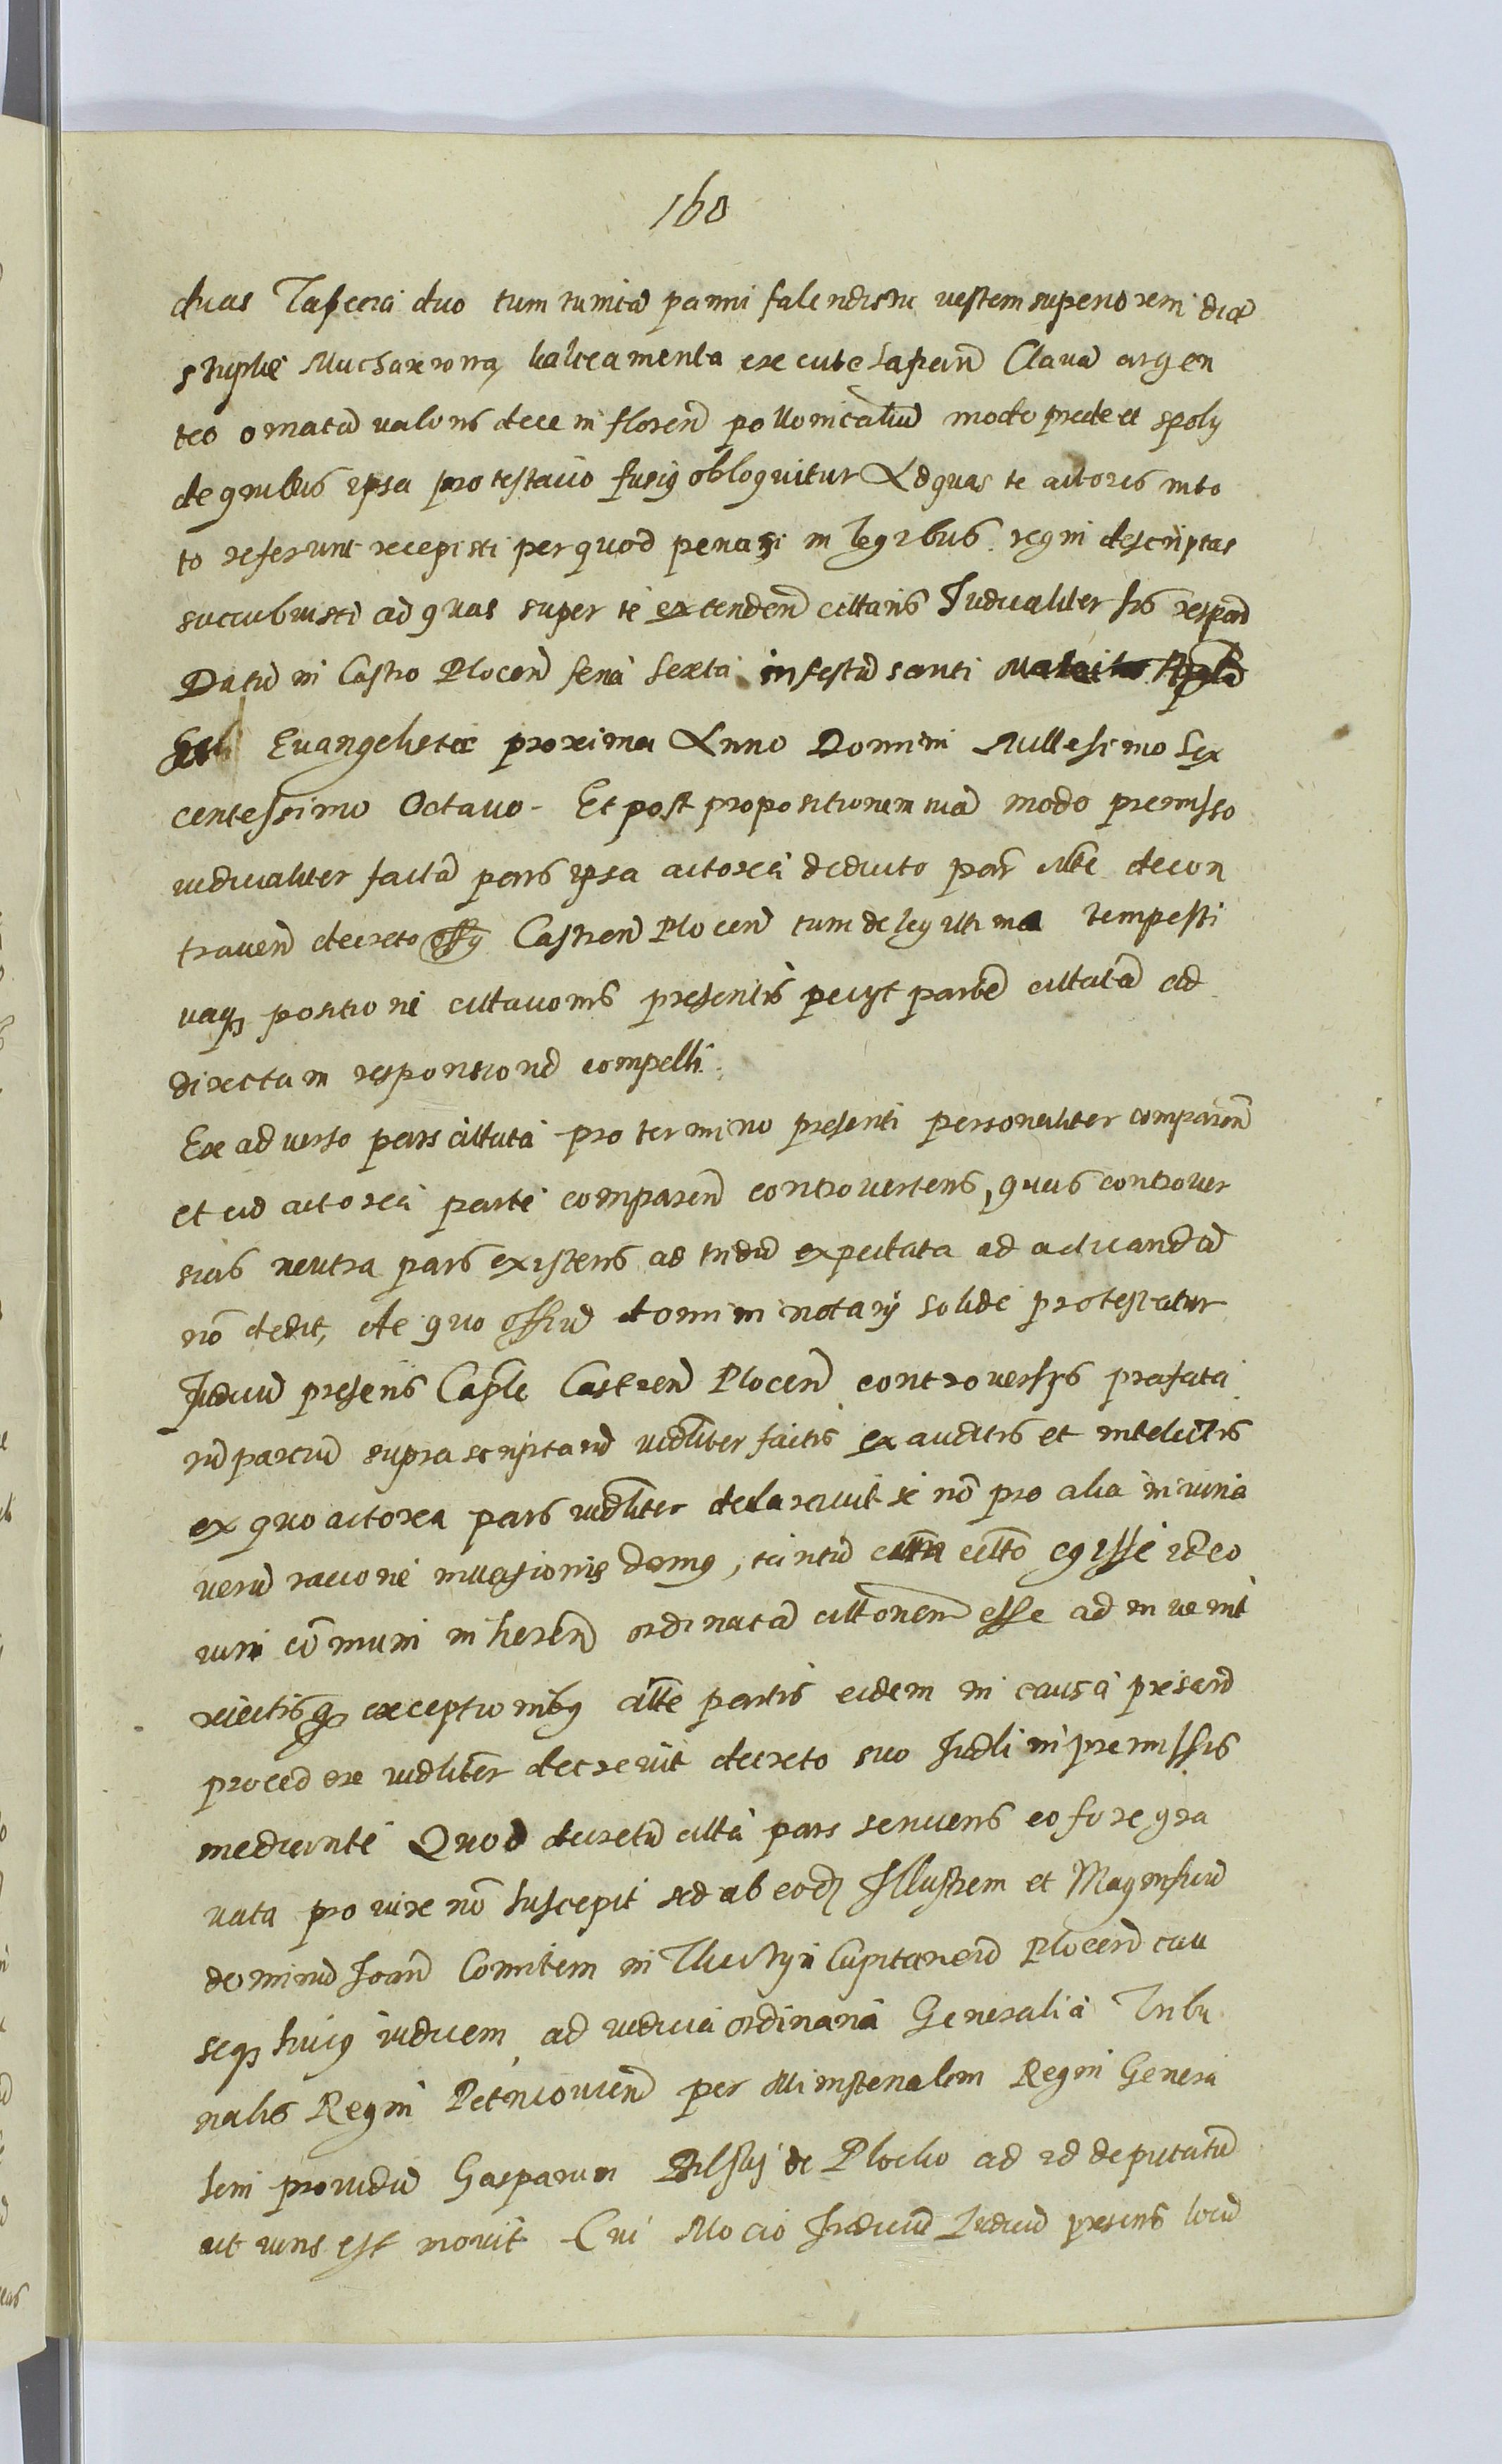 160
duas Tapeci duo tum tunicã panni falendisni vestem superiorem dicã
stuplic Mucharrona calceamenta ex cute Clavã argen
teo ornatã valoris decem florenõ pollonicaliũ modo prede et spoly
de quibus ipsa protestatio fusiꝰ obloquitur Ad quas te actoris in to
to referunt recepisti per quod penas in legibus regni descriptas
succubuisti ad quas super te extendenð cittaris Iudicialiter sis respond
Datũ in Castro Plocenð feria Sexta in festũ sancti
Evangelistæ proxima Anno Domini Millesimo Sex
centessimo Octavo - Et post propositionem suã modo premisso
iudicialiter factã pars ipsa actorea deducto par citte de con
travenð decreto offꝰ Castrenð Plocenð tum de legittima tempesti
vaqꝫ positione cittationis presentis pecyt partẽ cittatã ad
directam responsionẽ compelli.
Ex adverso pars cittata pro termino presenti personaliter comparenð
et cid actorea parte comparenð controvertens, quas controver
sias neutra pars existens ad induð expectata ad acticandũ
nõ dedit, de quo offiũ domini notarij solide protestatur
Iudiciũ presens Caple Castrenð Plocenð controversijs prefata
rũ partiũ suprascriptarũ iudliter factis exauditis et intelectis
ex quo actorea pars iudliter declaravit se nõ pro alia iniuria
verũ racione invasionis domꝰ, tantũ citto egisse ideo
iuri cõmuni inherenð ordinatã cittonem esse ad invenit
reiectisqꝫ exceptionibꝰ citte partis eidem in causa presenð
procedere iudliter decrevit decreto suo Iudli in premissis
mediante Quod decretũ citta pars senciens eo fore gra
vata pro iure nõ suscepit sed ab eodꝫ Illustrem et Magnificũ
dominũ Joanð Comitem in Capitaneũ Plocenð cau
seqꝫ huiꝰ iudicem ad iudicia ordinaria Generalia Tribu
nalis Regni Petricoviensð per Ministerialem Regni Genera
lem providũ Gasparum de Plocko ad id deputatũ
ut iuris est movit Cui Mocio Iudiciũ presens locũ